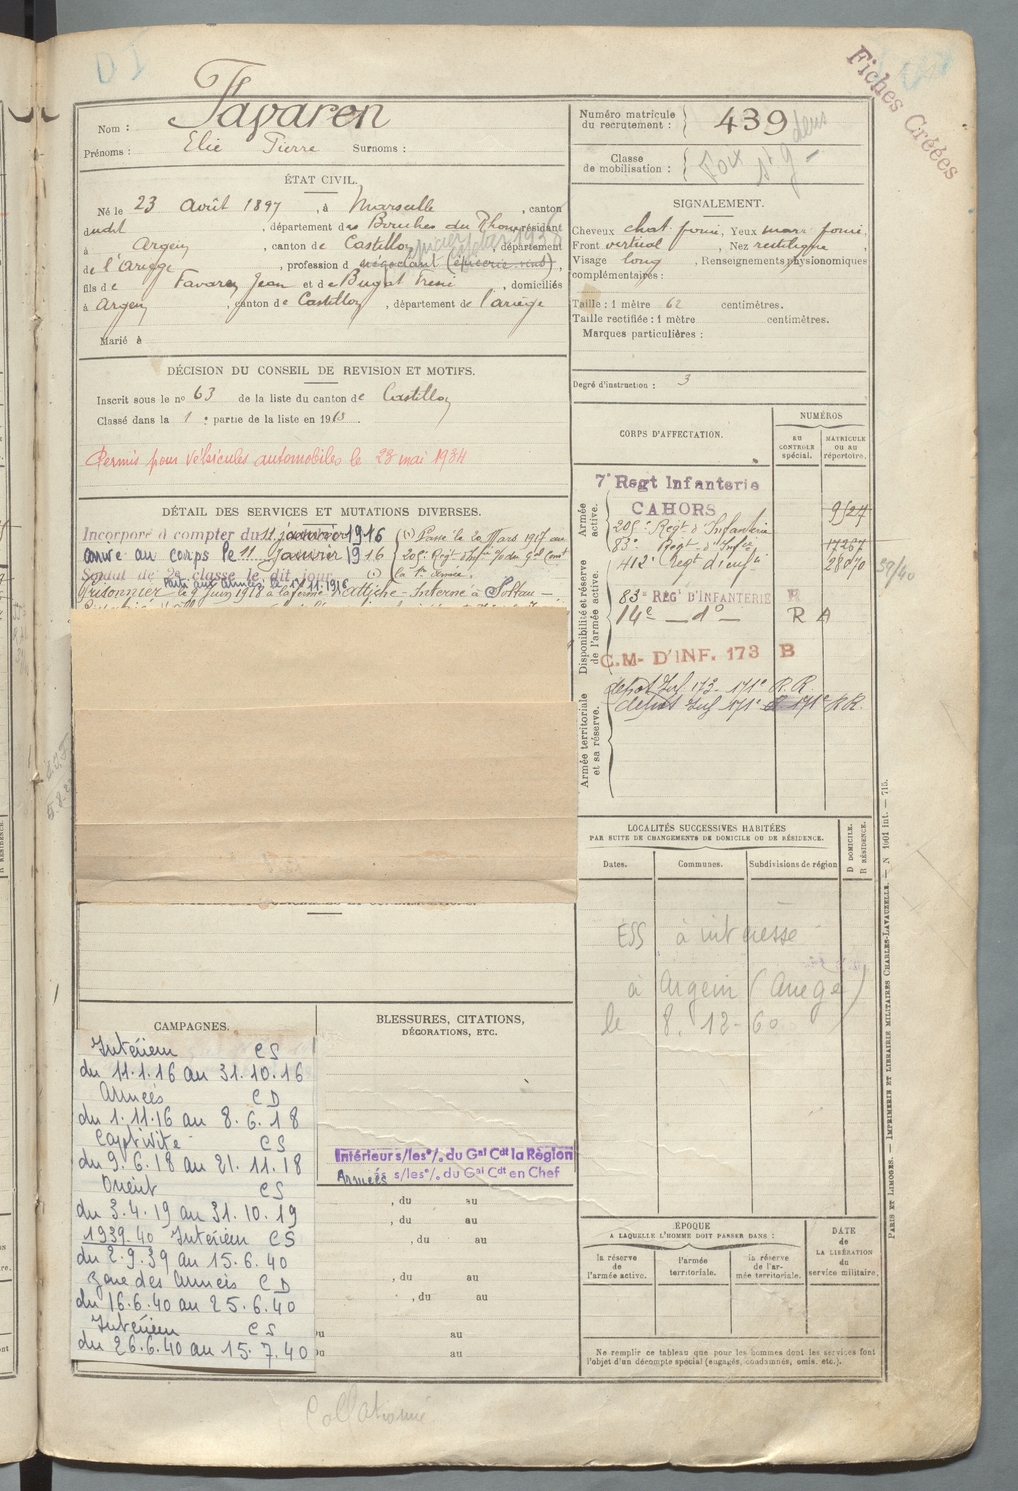 Fiches Créées
Nom : Favaren
Prénoms : Elie Pierre Surnoms :
Numéro matricule du recrutement : 439
Classe de mobilisation :
ÉTAT CIVIL.
Né le 23 Août 1897, à Marseille, canton
dudit, département des Bouches du Rhône, résidant
à Argein, canton de Castillon, département
de l'Ariège, profession d négociant (épicerie vins),
fils de Favaren Jean et de Bugat, domiciliés
à Argein, canton de Castillon, département de l'Ariège
Marié à
SIGNALEMENT.
Cheveux chat. foncé, Yeux marr. foncé,
Front vertical, Nez rectiligne,
Visage long, Renseignements physionomiques
complémentaires :
Taille : 1 mètre 62 centimètres.
Taille rectifiée : 1 mètre centimètres.
Marques particulières :
Degré d'instruction : 3
DÉCISION DU CONSEIL DE REVISION ET MOTIFS.
Inscrit sous le no 63 de la liste du canton de Castillon
Classé dans la 1e partie de la liste en 191
Permis pour véhicules automobiles le 28 mai 1934
CORPS D'AFFECTATION.
NUMÉROS
AU CONTROLE spécial.
MATRICULE OU AU répertoire.
Armée active.
7e Regt Infanterie
CAHORS
209e Regt d'Infanterie
83e Regt d'Infie
412e Regt d'Infie
39/40
Disponibilité et réserve de l'armée active.
83e REGt D'INFANTERIE R
14e — do — R A
C.M- D'INF. 173 B
Armée territoriale et sa réserve.
dépot Inf 173 - 171e R.R
dépot Inf 171e 171e R.R.
DÉTAIL DES SERVICES ET MUTATIONS DIVERSES.
Incorporé à compter du 11 janvier 1916
arrivé au corps le 11 janvier 1916
Soldat de 2e classe le dit jour
Parti aux armées le 1.11.1916
(1) Passé le 20 Mars 1917 au
209e Regt d'Infie
la 1e Armée.
Prisonnier le 9 Juin 1918 à la ferme d'Attiche - Interné à Soltau -
LOCALITÉS SUCCESSIVES HABITÉES
PAR SUITE DE CHANGEMENTS DE DOMICILE OU DE RÉSIDENCE.
Dates. Communes. Subdivisions de région
D DOMICILE. R RÉSIDENCE.
ESS à intéressé
à Argein (Ariège)
le 8.12-60
CAMPAGNES.
Intérieur CS
du 11.1.16 au 31.10.16
Armées CD
du 1.11.16 au 8.6.18
Captivité CS
du 9.6.18 au 21.11.18
Orient CS
du 3.4.19 au 31.10.19
1939.40 Intérieur CS
du 2.9.39 au 15.6.40
Zone des Armées CD
du 16.6.40 au 25.6.40
Intérieur CS
du 26.6.40 au 15.7.40
BLESSURES, CITATIONS,
DÉCORATIONS, ETC.
Intérieur s/les o/. du Gal Cdt la Région
Armées s/les o/. du Gal Cdt en Chef
, du au
, du au
, du au
, du au
, du au
au
au
ÉPOQUE
A LAQUELLE L'HOMME DOIT PASSER DANS :
la réserve de l'armée active.
l'armée territoriale.
la réserve de l'armée territoriale.
DATE de LA LIBÉRATION du service militaire.
Ne remplir ce tableau que pour les hommes dont les services font
l'objet d'un décompte spécial (engagés, condamnés, omis, etc.).
PARIS ET LIMOGES. — IMPRIMERIE ET LIBRAIRIE MILITAIRES CHARLES-LAVAUZELLE. — N 1001 int. — 715.